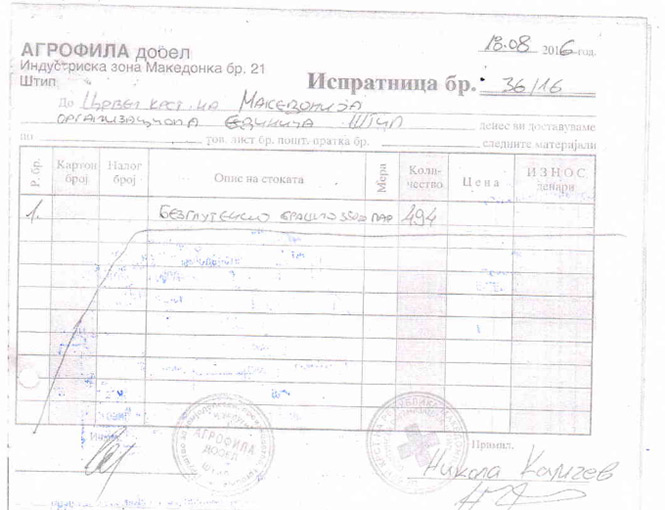 АГРОФИЛА дооел
Индустриска зона Македонка бр. 21
Штип
18.08 2016 год.
Испратница бр. 36/16
До Црвен крст на Македонија
организациона единица Штип денес ви доставуваме
по тов. лист бр. пошт. пратка бр. следните материјали
Р. бр. Картон број Налог број Опис на стоката Мера Количество Цена ИЗНОС денари
1. Безглутенско брашно 494
АГРОФИЛА
ДООЕЛ
Примил,
Никола